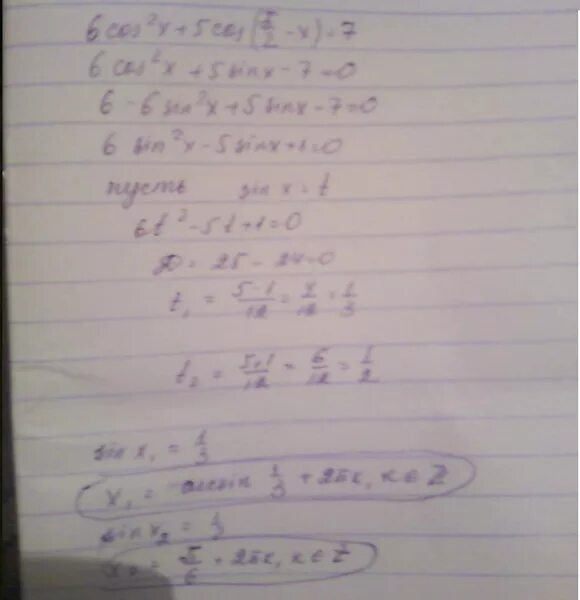 6cos²x+5cos(π/2-x)=7
6cos²x+5sinx-7=0
6-6sin²x+5sinx-7=0
6sin²x-5sinx+1=0
пусть sinx=t
6t²-5t+1=0
D=25-24=0
t₁=5-1/12=4/12=1/3
t₂=5+1/12=6/12=1/2
sinx₁=1/3
x₁=arcsin 1/3+2πk, k∈Z
sinx₂=
x₂=π/6+2πk, k∈Z